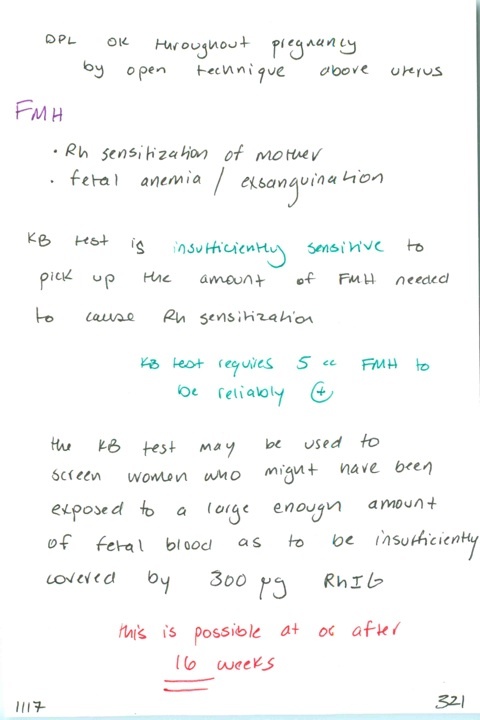 DPL OK throughout pregnancy
by open technique above uterus
FMH
• Rh sensitization of mother
• fetal anemia / exsanguination
KB test is insufficiently sensitive to
pick up the amount of FMH needed
to cause Rh sensitization
KB test requires 5 cc FMH to
be reliably (+)
the KB test may be used to
screen women who might have been
exposed to a large enough amount
of fetal blood as to be insufficiently
covered by 300 μg RhIG
this is possible at or after
16 weeks
1117
321